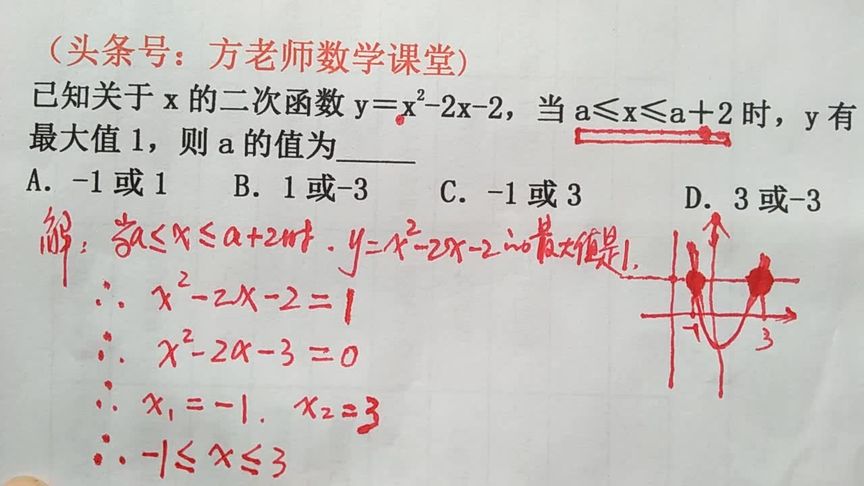 （头条号：方老师数学课堂)
已知关于 x 的二次函数 y＝x²-2x-2，当 a≤x≤a＋2 时，y 有
最大值 1，则 a 的值为_____
A．-1 或 1 B．1 或-3 C．-1 或 3 D．3 或-3
解：当a≤x≤a+2时．y=x²-2x-2的最大值是1．
∴ x²-2x-2=1
∴ x²-2x-3=0
∴ x₁=-1． x₂=3
∴ -1≤x≤3
-1 3